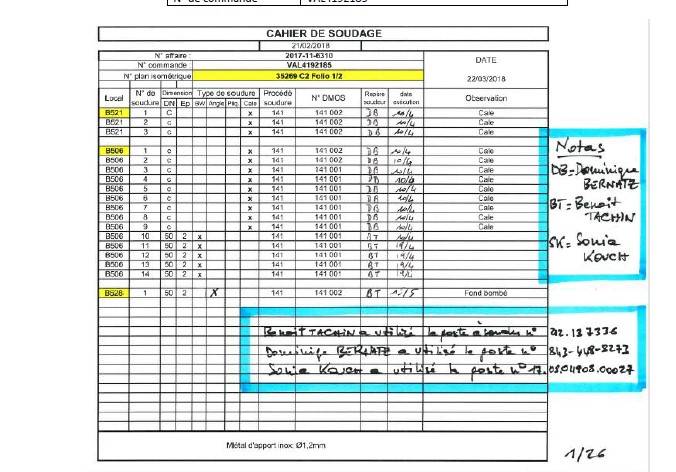 N° de commande VAL4192185
CAHIER DE SOUDAGE
21/02/2018
N° affaire : 2017-11-6310
N° commande : VAL4192185
DATE
N° plan isométrique 35269 C2 Folio 1/2 22/03/2018
Local N° de soudure Dimension Type de soudure Procédé soudure N° DMOS Repère soudeur date exécution Observation
DN Ep BW Angle Piq. Cale
B521 1 C x 141 141 002 DB 10/4 Cale
B521 2 c x 141 141 002 DB 10/4 Cale
B521 3 c x 141 141 002 DB 10/4 Cale
B506 1 c x 141 141 002 DB 10/4 Cale
B506 2 c x 141 141 002 DB 10/4 Cale
B506 3 c x 141 141 001 DB 10/4 Cale
B506 4 c x 141 141 001 DB 10/4 Cale
B506 5 c x 141 141 001 DB 10/4 Cale
B506 6 c x 141 141 001 DB 10/4 Cale
B506 7 c x 141 141 001 DB 10/4 Cale
B506 8 c x 141 141 001 DB 10/4 Cale
B506 9 c x 141 141 001 DB 10/4 Cale
B506 10 50 2 x 141 141 001 BT
B506 11 50 2 x 141 141 001 BT 19/4
B506 12 50 2 x 141 141 001 BT 19/4
B506 13 50 2 x 141 141 001 BT 19/4
B506 14 50 2 x 141 141 001 BT 19/4
B528 1 50 2 X 141 141 002 BT Fond bombé
Notas
DB = Dominique BERNATZ
BT = Benoit TACHIN
SK = Sonia KOUCH
Benoit TACHIN a utilisé le poste à souder n° 212.137336
Dominique BERNATZ a utilisé le poste n° 843-448-8273
Sonia KOUCH a utilisé le poste n° 17.05.04908.00027
Métal d'apport inox: Ø1,2mm
1/26